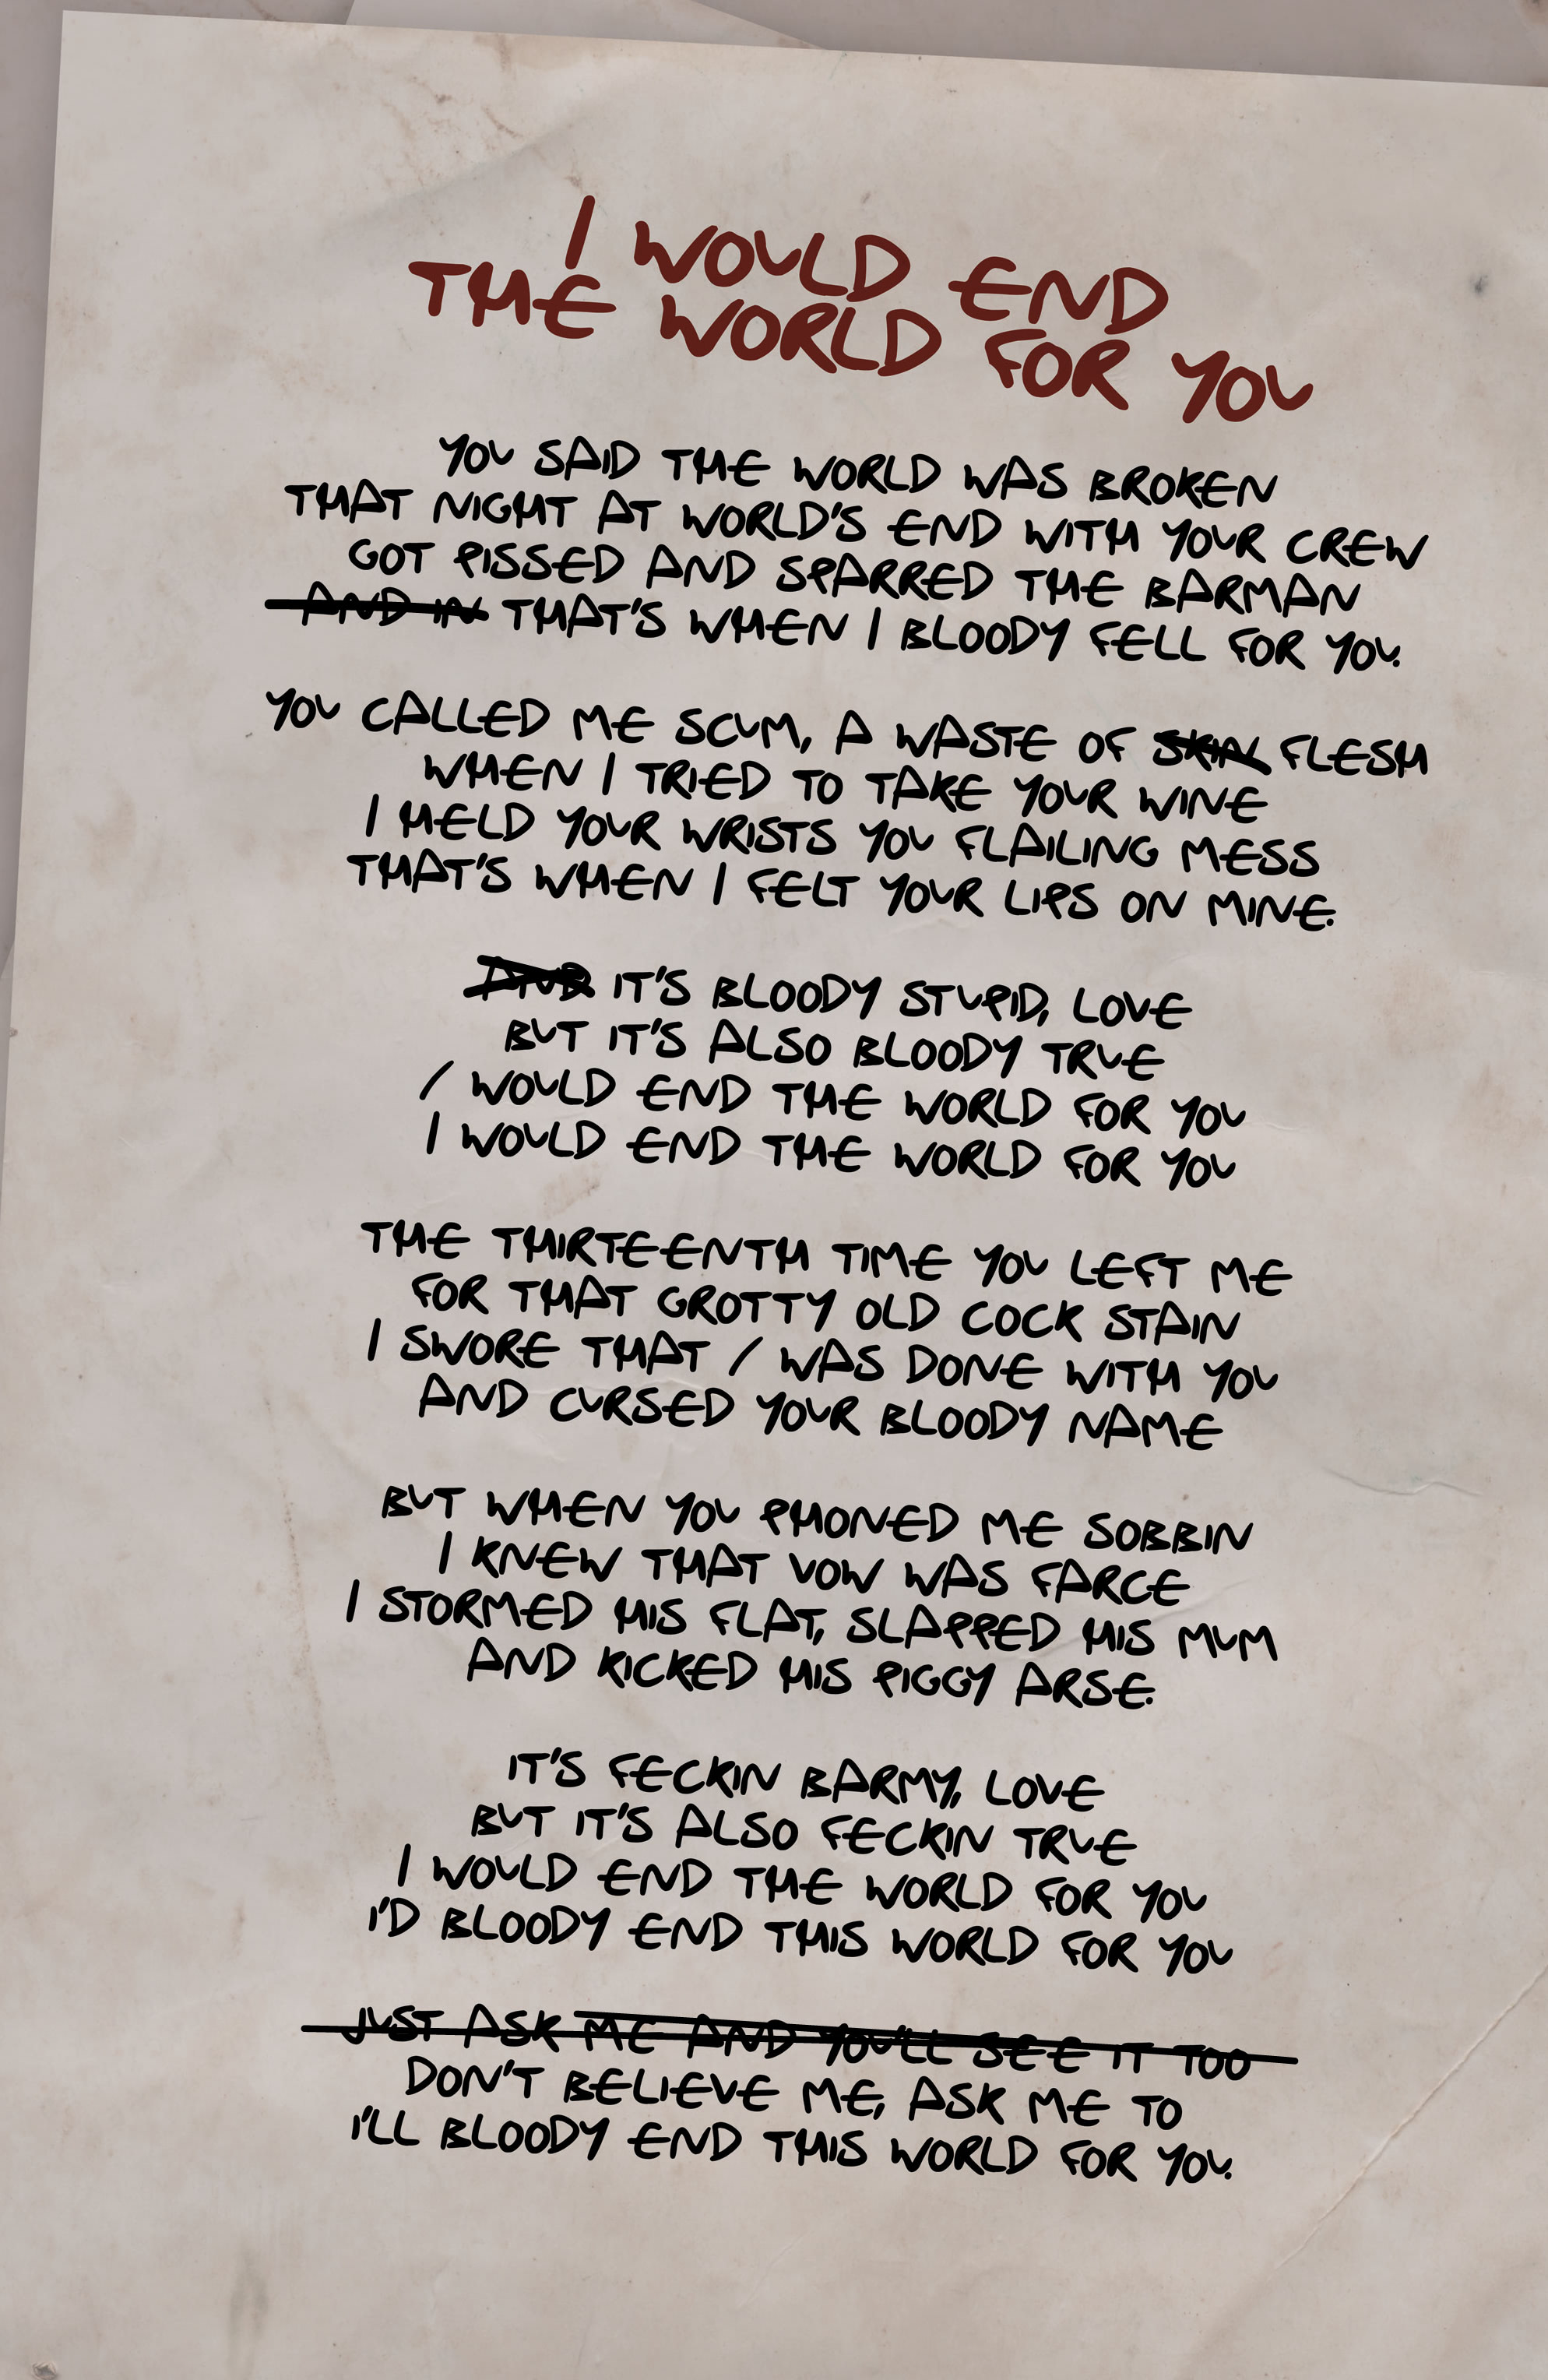 I WOULD END
THE WORLD FOR YOU
YOU SAID THE WORLD WAS BROKEN
THAT NIGHT AT WORLD'S END WITH YOUR CREW
GOT PISSED AND SPARRED THE BARMAN
AND IN THAT'S WHEN I BLOODY FELL FOR YOU.
YOU CALLED ME SCUM, A WASTE OF SKIN FLESH
WHEN I TRIED TO TAKE YOUR WINE
I HELD YOUR WRISTS YOU FLAILING MESS
THAT'S WHEN I FELT YOUR LIPS ON MINE.
AND IT'S BLOODY STUPID, LOVE
BUT IT'S ALSO BLOODY TRUE
I WOULD END THE WORLD FOR YOU
I WOULD END THE WORLD FOR YOU
THE THIRTEENTH TIME YOU LEFT ME
FOR THAT GROTTY OLD COCK STAIN
I SWORE THAT I WAS DONE WITH YOU
AND CURSED YOUR BLOODY NAME
BUT WHEN YOU PHONED ME SOBBIN
I KNEW THAT VOW WAS FARCE
I STORMED HIS FLAT, SLAPPED HIS MUM
AND KICKED HIS PIGGY ARSE.
IT'S FECKIN BARMY, LOVE
BUT IT'S ALSO FECKIN TRUE
I WOULD END THE WORLD FOR YOU
I'D BLOODY END THIS WORLD FOR YOU
JUST ASK ME AND YOU'LL SEE IT TOO
DON'T BELIEVE ME, ASK ME TO
I'LL BLOODY END THIS WORLD FOR YOU.